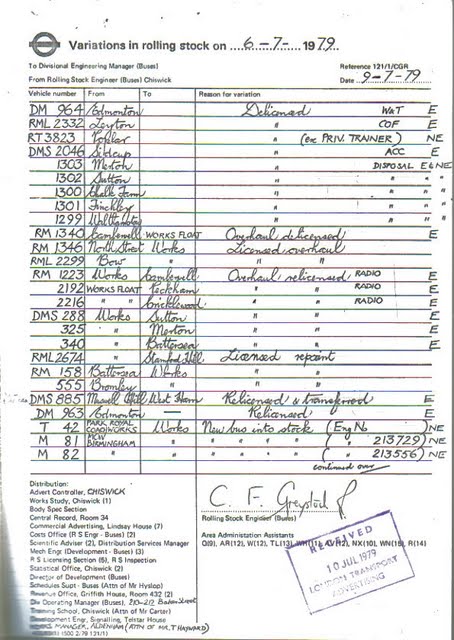 Variations in rolling stock on 6-7- 1979.
To Divisional Engineering Manager (Buses) Reference 121/1/CGR
From Rolling Stock Engineer (Buses) Chiswick Date 9-7-79
Vehicle number From To Reason for variation
DM 964 Edmonton Delicensed WAT E
RML 2332 Leyton " COF E
RT 3823 " (ex PRIV. TRAINER) NE
DMS 2046 Sidcup " ACC E
1303 Merton " DISPOSAL E & NE
1302 Sutton " " " "
1300 Chalk Farm " " " "
1301 Finchley " " " "
1299 " " " "
RM 1340 Camberwell WORKS FLOAT Overhaul delicensed E
RM 1346 North Street Works Licensed overhaul
RML 2299 Bow " " "
RM 1223 Works Camberwell Overhaul relicensed RADIO E
2192 WORKS FLOAT Peckham " " RADIO E
2216 " Cricklewood " " RADIO E
DMS 288 Works Sutton " " E
325 " Merton " " E
340 " Battersea " " E
RML 2674 Stamford Hill Licensed repaint
RM 158 Battersea Works " "
555 Bromley " " "
DMS 885 Muswell Hill West Ham Relicensed & transferred E
DM 963 Edmonton — Relicensed E
T 42 PARK ROYAL COACHWORKS Works New bus into stock (Eng No ) NE
M 81 MCW BIRMINGHAM " " " " " ( " 213729) NE
M 82 " " " " " " ( " 213556) NE
continued over
Distribution:
Advert Controller, CHISWICK
Works Study, Chiswick (1)
Body Spec Section
Central Record, Room 34
Commercial Advertising, Lindsay House (7)
Costs Office (R S Engr - Buses) (2)
Scientific Adviser (2), Distribution Services Manager
Mech Engr (Development - Buses) (3)
R S Licensing Section (5), R S Inspection
Statistical Office, Chiswick (2)
Director of Development (Buses)
Schedules Supt - Buses (Attn of Mr Hyslop)
Revenue Office, Griffith House, Room 432 (2)
Operating Manager (Buses), 210-212
Training School, Chiswick (Attn of Mr Carter)
Development Engr, Signalling, Telstar House
WORKS MANAGER, ALDENHAM (ATTN OF MR. T HAYWARD)
C. F. Greystock
Rolling Stock Engineer (Buses)
Area Administration Assistants
Q(9), AR(12), W(12), TL(13), NX(10), WN(15), R(14)
RECEIVED
10 JUL 1979
LONDON TRANSPORT
ADVERTISING